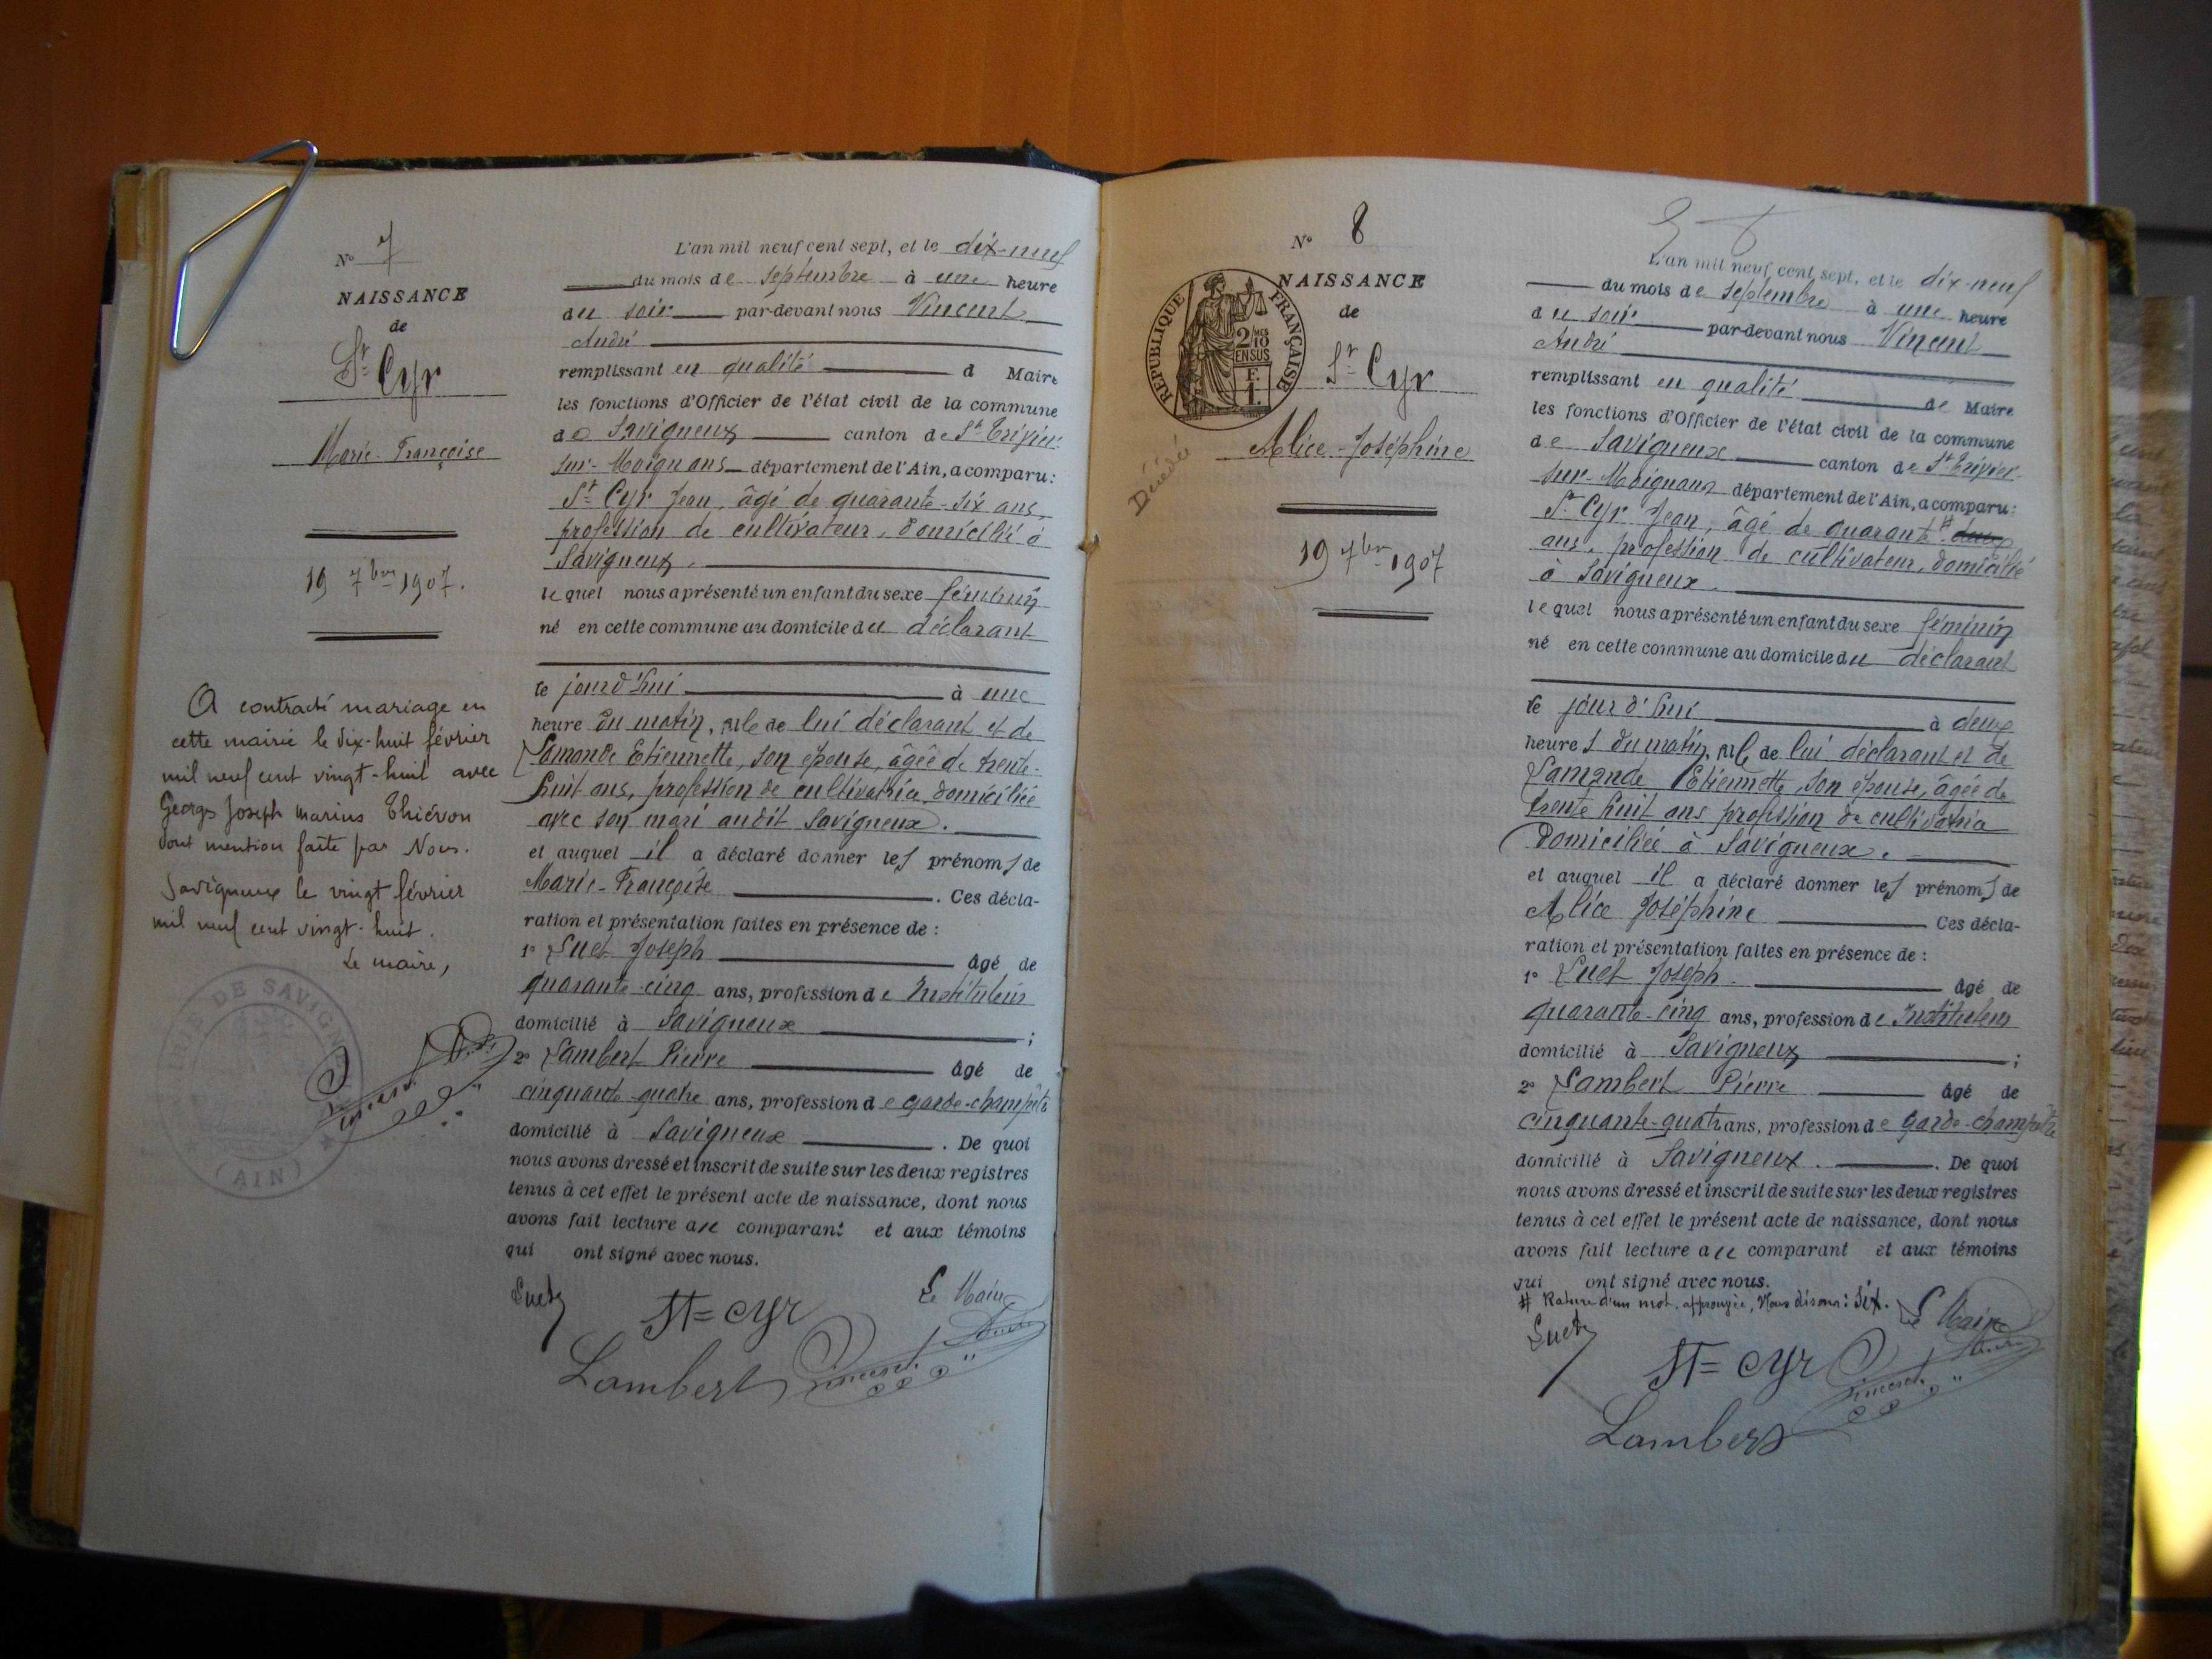 N° 7
NAISSANCE
de
St Cyr
Marie-Françoise
19 7bre 1907.
A contracté mariage en
cette mairie le dix-huit février
mil neuf cent vingt-huit avec
Georges Joseph Marius Thiévon
dont mention faite par Nous.
Savigneux le vingt février
mil neuf cent vingt-huit.
Le maire,
MAIRIE DE SAVIGNEUX
(AIN)
L'an mil neuf cent sept, et le dix-neuf
du mois de Septembre à une heure
du soir par-devant nous Vincent
André
remplissant en qualité d Maire
les fonctions d'Officier de l'état civil de la commune
de Savigneux canton de St Trivier
sur-Moignans département de l'Ain, a comparu:
St Cyr Jean, âgé de quarante-six ans,
profession de cultivateur, domicilié à
Savigneux.
lequel nous a présenté un enfant du sexe féminin
né en cette commune au domicile du déclarant
le jourd'hui à une
heure du matin, fille de lui déclarant et de
Lamonde Etiennette, son épouse, âgée de trente-
huit ans, profession de cultivatrice, domiciliée
avec son mari audit Savigneux.
et auquel il a déclaré donner les prénoms de
Marie-Françoise. Ces décla-
ration et présentation faites en présence de :
1° Luet Joseph âgé de
quarante-cinq ans, profession de Instituteur
domicilié à Savigneux ;
2° Lambert Pierre âgé de
cinquante-quatre ans, profession de garde-champêtre
domicilié à Savigneux. De quoi
nous avons dressé et inscrit de suite sur les deux registres
tenus à cet effet le présent acte de naissance, dont nous
avons fait lecture au comparant et aux témoins
qui ont signé avec nous.
Luet
St=cyr
Le Maire
Lambert
Vincent André
N° 8
NAISSANCE
de
RÉPUBLIQUE FRANÇAISE
2/10 MES
EN SUS
F.
1.
St Cyr
Alice-Joséphine
Décédée
19 7bre 1907
L'an mil neuf cent sept, et le dix-neuf
du mois de Septembre à une heure
du soir par-devant nous Vincent
André
remplissant en qualité de Maire
les fonctions d'Officier de l'état civil de la commune
de Savigneux canton de St Trivier
sur-Moignans département de l'Ain, a comparu:
St Cyr Jean, âgé de quarante # deux
ans, profession de cultivateur, domicilié
à Savigneux.
lequel nous a présenté un enfant du sexe féminin
né en cette commune au domicile du déclarant
le jour d'hui à deux
heures du matin, fille de lui déclarant et de
Lamonde Etiennette, son épouse, âgée de
trente huit ans profession de cultivatrice
domiciliée à Savigneux.
et auquel il a déclaré donner les prénoms de
Alice Joséphine Ces décla-
ration et présentation faites en présence de :
1° Luet Joseph. âgé de
quarante-cinq ans, profession de Instituteur
domicilié à Savigneux ;
2° Lambert Pierre âgé de
cinquante-quatre ans, profession de garde-champêtre
domicilié à Savigneux. De quoi
nous avons dressé et inscrit de suite sur les deux registres
tenus à cet effet le présent acte de naissance, dont nous
avons fait lecture au comparant et aux témoins
qui ont signé avec nous.
# Rature d'un mot approuvée, Nous disons : Six.
Le Maire
Luet
St=cyr
Vincent André
Lambert